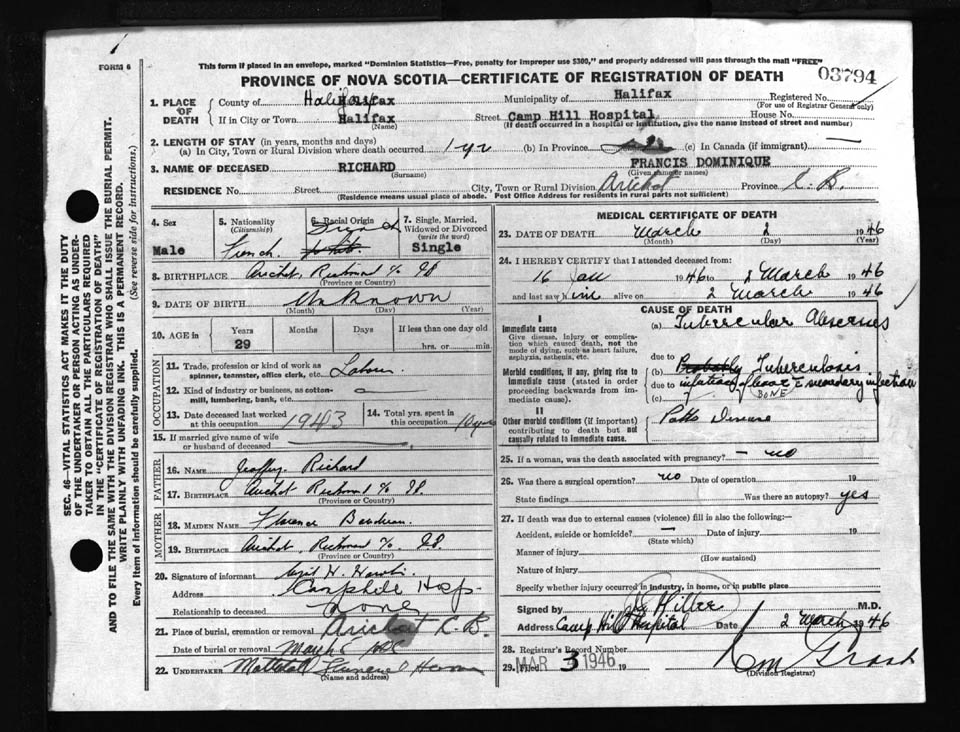 This form if placed in an envelope, marked "Dominion Statistics—Free, penalty for improper use $300," and properly addressed will pass through the mail "FREE"
FORM 6
PROVINCE OF NOVA SCOTIA—CERTIFICATE OF REGISTRATION OF DEATH
03794
SEC. 46—VITAL STATISTICS ACT MAKES IT THE DUTY OF THE UNDERTAKER OR PERSON ACTING AS UNDERTAKER TO OBTAIN ALL THE PARTICULARS REQUIRED IN THE "CERTIFICATE OF REGISTRATION OF DEATH"
AND TO FILE THE SAME WITH THE DIVISION REGISTRAR WHO SHALL ISSUE THE BURIAL PERMIT.
WRITE PLAINLY WITH UNFADING INK. THIS IS A PERMANENT RECORD.
Every item of Information should be carefully supplied. (See reverse side for instructions.)
1. PLACE OF DEATH County of Halifax Municipality of Halifax Registered No.
(For use of Registrar General only)
If in City or Town Halifax Street Camp Hill Hospital House No.
(Name) (If death occurred in a hospital or institution, give the name instead of street and number)
2. LENGTH OF STAY (in years, months and days)
(a) In City, Town or Rural Division where death occurred 1 yr (b) In Province (c) In Canada (if immigrant) —
3. NAME OF DECEASED RICHARD FRANCIS DOMINIQUE
(Surname) (Given name or names)
RESIDENCE No. Street City, Town or Rural Division Arichat Province C. B.
(Residence means usual place of abode. Post Office Address for residents in rural parts not sufficient)
4. Sex Male
5. Nationality (Citizenship) French
6. Racial Origin French
7. Single, Married, Widowed or Divorced (write the word) Single
8. BIRTHPLACE Arichat, Richmond Co
(Province or Country)
9. DATE OF BIRTH Unknown
(Month) (Day) (Year)
10. AGE in Years Months Days If less than one day
29 hrs. or min.
OCCUPATION
11. Trade, profession or kind of work as spinner, teamster, office clerk, etc. Labour
12. Kind of industry or business, as cotton-mill, lumbering, bank, etc.
13. Date deceased last worked at this occupation 1943
14. Total yrs. spent in this occupation 10 years
15. If married give name of wife or husband of deceased
FATHER
16. NAME Richard
17. BIRTHPLACE Arichat Richmond Co
(Province or Country)
MOTHER
18. MAIDEN NAME Florence Boudreau
19. BIRTHPLACE Arichat, Richmond Co
(Province or Country)
20. Signature of informant
Address Camphill Hosp.
Relationship to deceased none
21. Place of burial, cremation or removal Arichat C. B.
Date of burial or removal March 5
22. UNDERTAKER
(Name and address)
MEDICAL CERTIFICATE OF DEATH
23. DATE OF DEATH March 2 1946
(Month) (Day) (Year)
24. I HEREBY CERTIFY that I attended deceased from:
16 Jan 1946 to 2 March 1946
and last saw him alive on 2 March 1946
CAUSE OF DEATH
I
Immediate cause
Give disease, injury or complication which caused death, not the mode of dying, such as heart failure, asphyxia, asthenia, etc.
(a) Tubercular Abscesses
due to
Morbid conditions, if any, giving rise to immediate cause (stated in order proceeding backwards from immediate cause).
(b) Probably Tuberculosis
due to infection of bone c secondary infection
(c) BONE
II
Other morbid conditions (if important) contributing to death but not causally related to immediate cause.
Potts Disease
25. If a woman, was the death associated with pregnancy? — no
26. Was there a surgical operation? no Date of operation 19
State findings Was there an autopsy? yes
27. If death was due to external causes (violence) fill is also the following:—
Accident, suicide or homicide? — Date of injury 19
(State which)
Manner of injury
(How sustained)
Nature of injury
Specify whether injury occurred in industry, in home, or in public place
Signed by Miller M.D.
Address Camp Hill Hospital Date 2 March 1946
28. Registrar's Record Number
29. Filed MAR 3 1946 19
(Division Registrar)